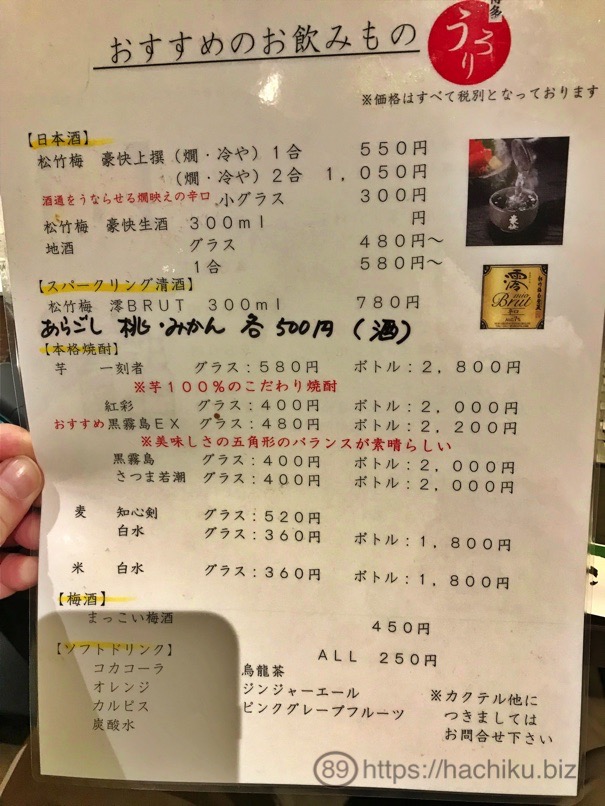 おすすめのお飲みもの
博多
うろり
※価格はすべて税別となっております
【日本酒】
松竹梅 豪快上撰（燗・冷や）１合 ５５０円
（燗・冷や）２合 １，０５０円
酒通をうならせる燗映えの辛口 小グラス ３００円
松竹梅 豪快生酒 ３００ｍｌ 円
地酒 グラス ４８０円～
１合 ５８０円～
【スパークリング清酒】
松竹梅 澪ＢＲＵＴ ３００ｍｌ ７８０円
澪
Brut
あらごし 桃・みかん 各500円（酒）
【本格焼酎】
芋 一刻者 グラス：５８０円 ボトル：２，８００円
※芋１００％のこだわり焼酎
紅彩 グラス：４００円 ボトル：２，０００円
おすすめ 黒霧島ＥＸ グラス：４８０円 ボトル：２，２００円
※美味しさの五角形のバランスが素晴らしい
黒霧島 グラス：４００円 ボトル：２，０００円
さつま若潮 グラス：４００円 ボトル：２，０００円
麦 知心剣 グラス：５２０円
白水 グラス：３６０円 ボトル：１，８００円
米 白水 グラス：３６０円 ボトル：１，８００円
【梅酒】
まっこい梅酒 ４５０円
【ソフトドリンク】 ＡＬＬ ２５０円
コカコーラ 烏龍茶
オレンジ ジンジャーエール
カルピス ピンクグレープフルーツ
炭酸水
※カクテル他に
つきましては
お問合せ下さい
89 https://hachiku.biz